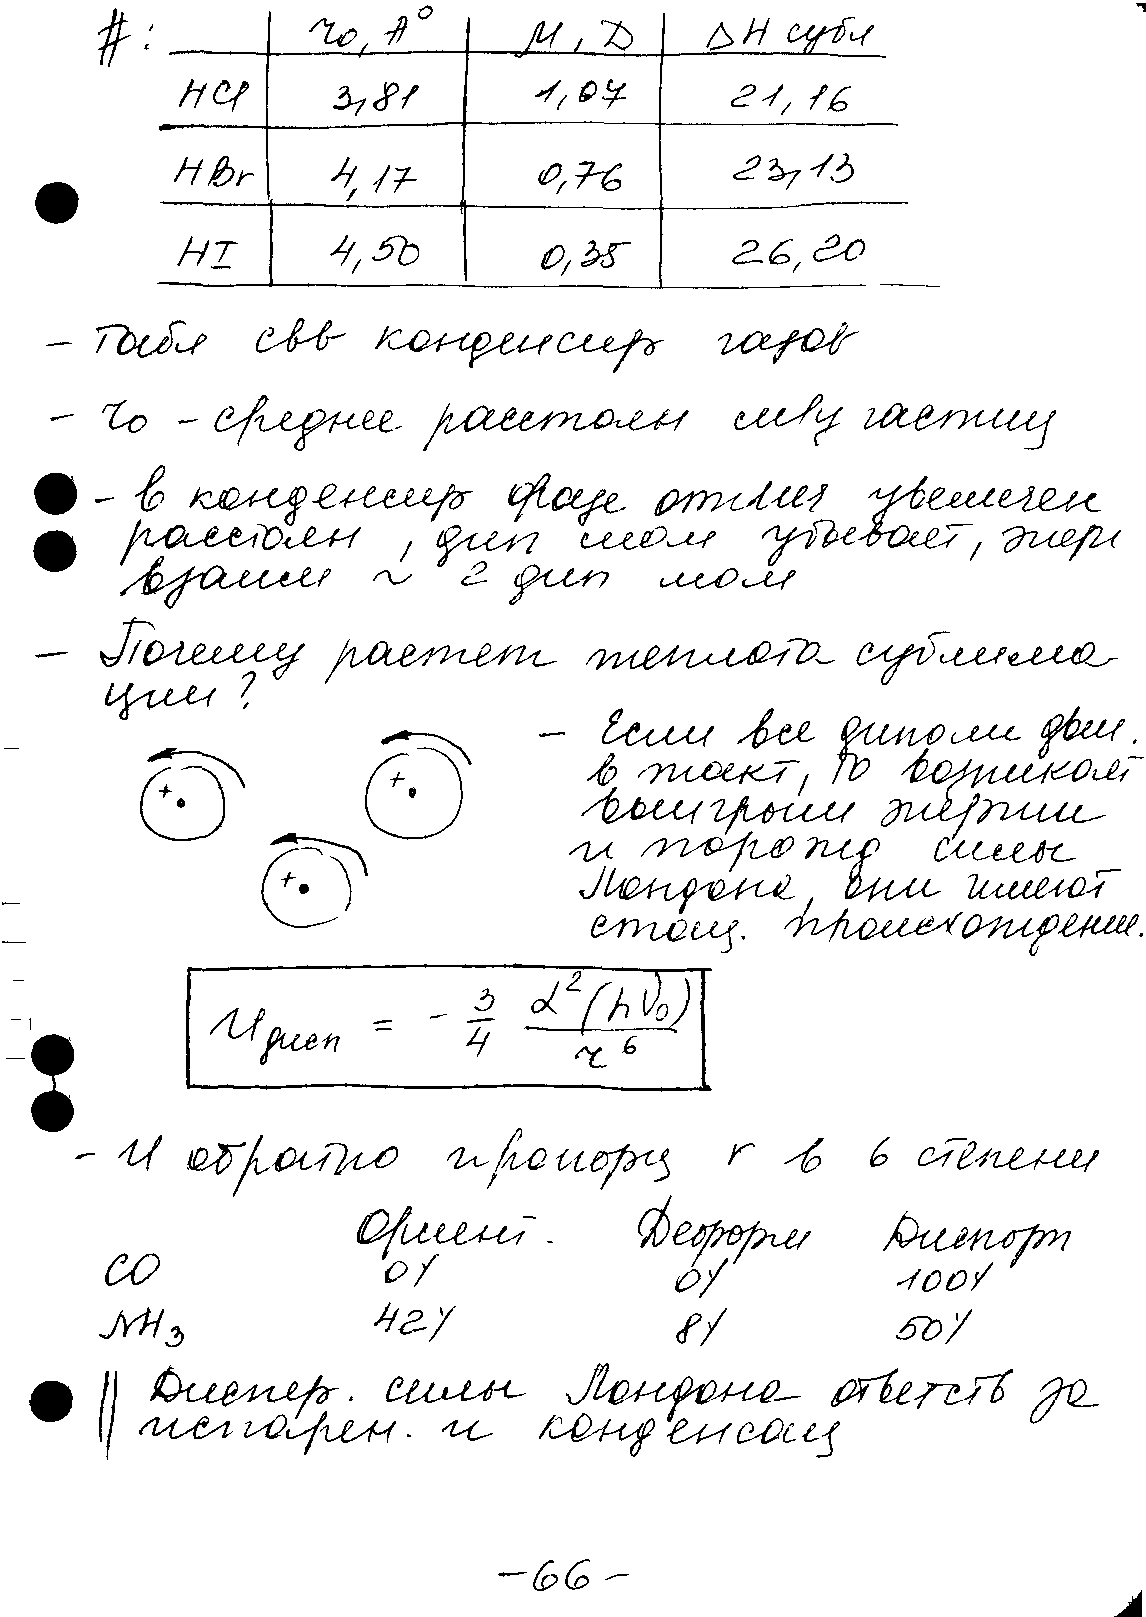 #: r₀, A° M, D ΔH субл
HCl 3,81 1,07 21,16
HBr 4,17 0,76 23,13
HI 4,50 0,35 26,20
- Табл свв конденсир газов
- r₀ - среднее расстоян м/у частиц
- в конденсир фазе увеличен
расстоян, дип мом убывает, энерг
взаим ~ 2 дип мом
- Почему растет теплота сублима
ции?
- Если все диполи дви.
в такт, то возникает
выигрыш энергии
и порожд силы
Лондона, они имеют
происхождение.
U дисп = - 3/4 α²(hν₀)/r⁶
- U обратно пропорц r в 6 степени
Ориент. Деформ Дисперг
CO 0% 0% 100%
NH₃ 42% 8% 50%
Диспер. силы Лондона ответств за
испарен. и конденсац
-66-